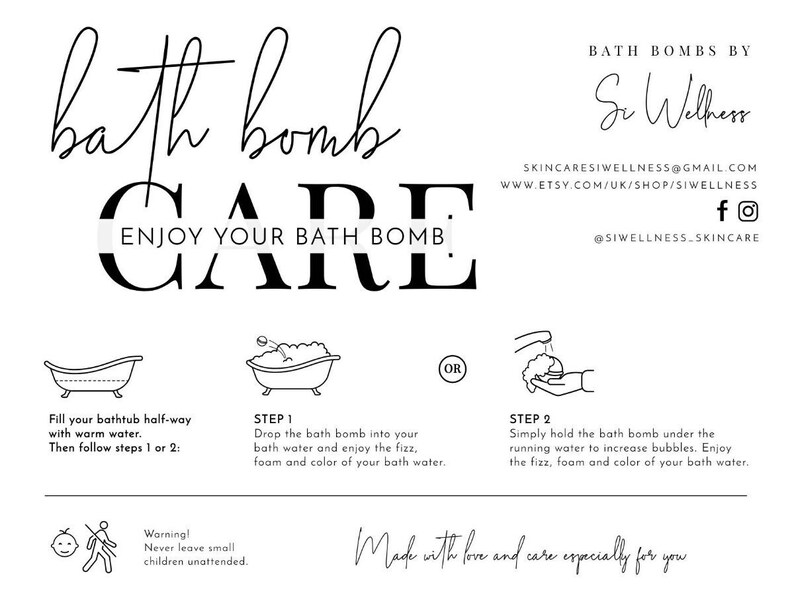 bath bomb
CARE
ENJOY YOUR BATH BOMB
BATH BOMBS BY
Si Wellness
SKINCARESIWELLNESS@GMAIL.COM
WWW.ETSY.COM/UK/SHOP/SIWELLNESS
@SIWELLNESS_SKINCARE
Fill your bathtub half-way
with warm water.
Then follow steps 1 or 2:
STEP 1
Drop the bath bomb into your
bath water and enjoy the fizz,
foam and color of your bath water.
OR
STEP 2
Simply hold the bath bomb under the
running water to increase bubbles. Enjoy
the fizz, foam and color of your bath water.
Warning!
Never leave small
children unattended.
Made with love and care especially for you